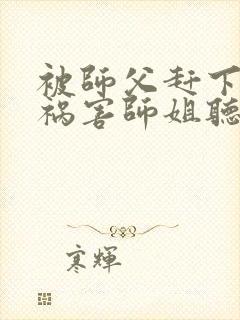 被師父赶下
祸害師姐聽
寒輝